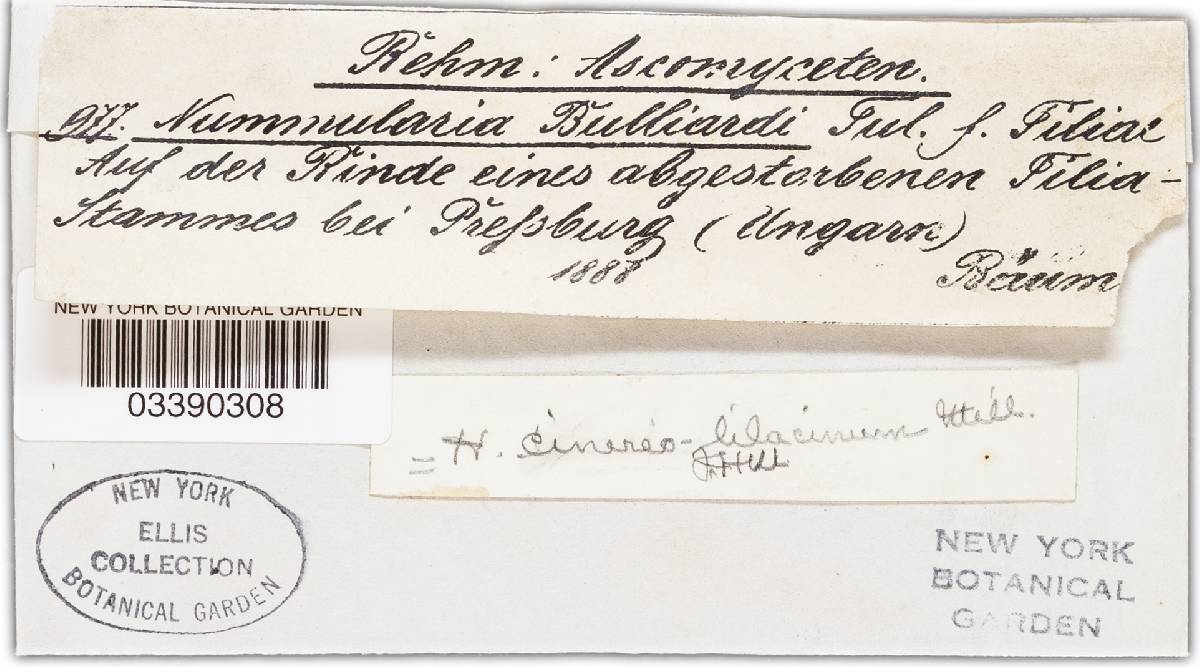 Rehm: Ascomyceten.
977. Nummularia Bulliardi Tul. f. Tiliae
Auf der Rinde eines abgestorbenen Tilia-
Stammes bei Preßburg (Ungarn)
1888 Bäum
NEW YORK BOTANICAL GARDEN
03390308
= H. cinereo-lilacinum Mill.
JHM
NEW YORK
ELLIS
COLLECTION
BOTANICAL GARDEN
NEW YORK
BOTANICAL
GARDEN